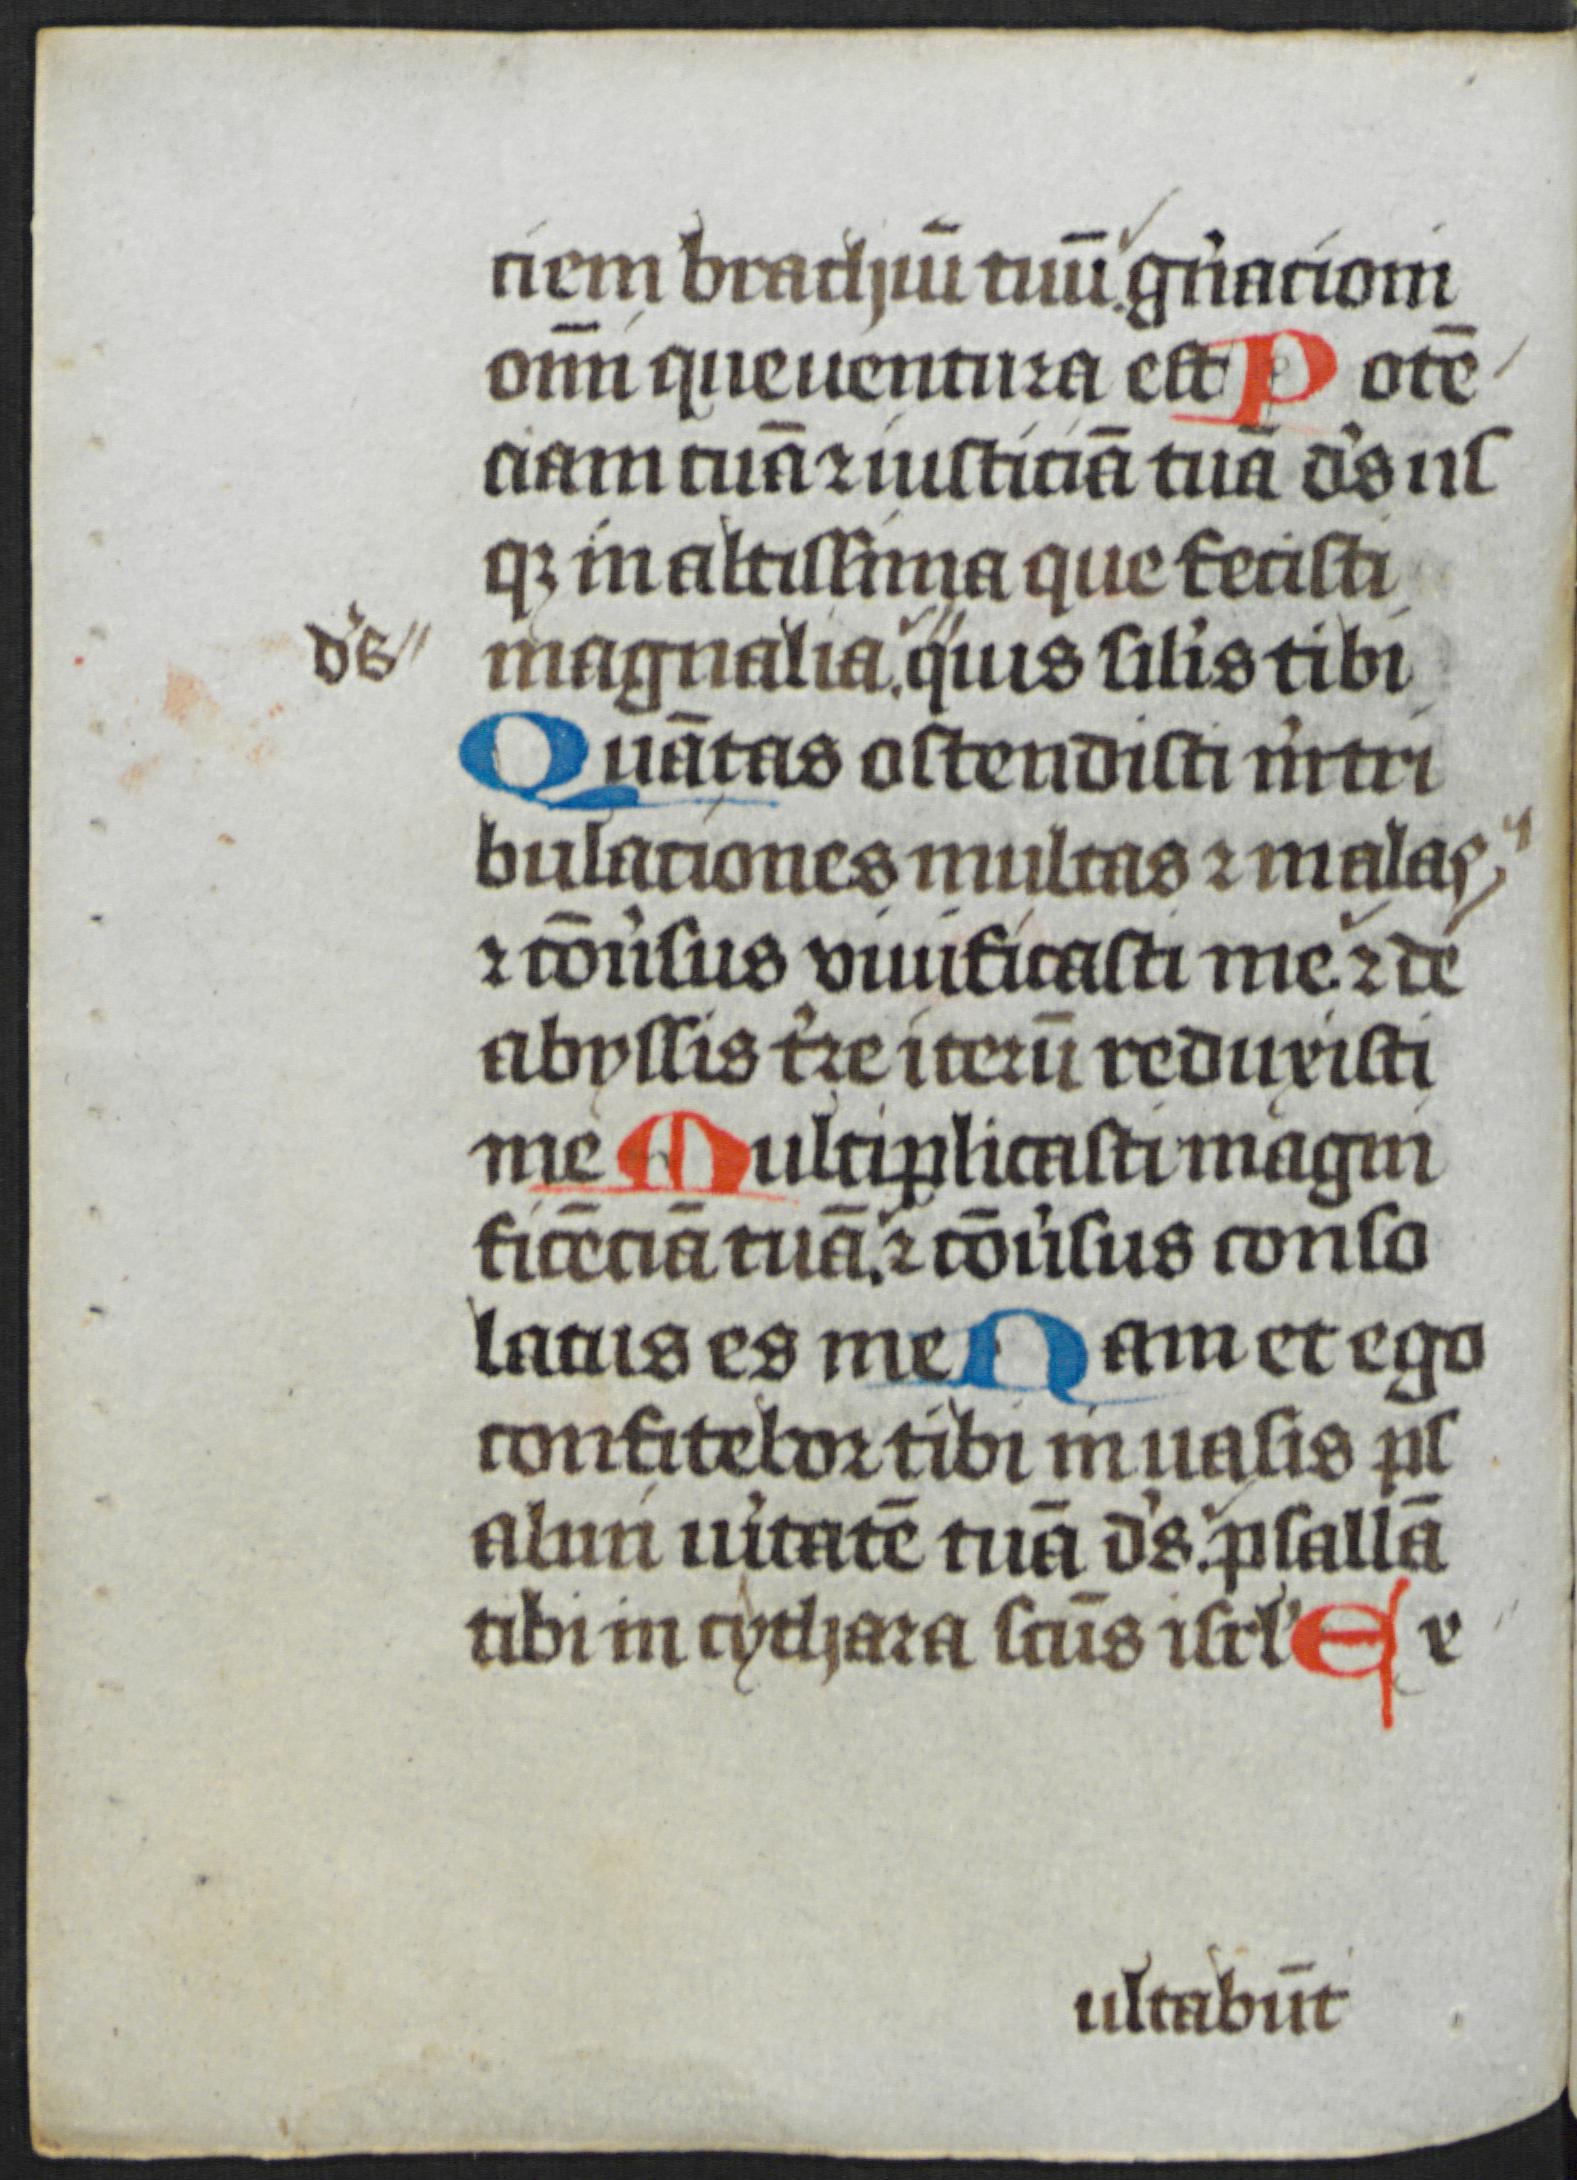 ciem brachiū tuū. gn̄acioni
om̄i que uentura est Potē
ciam tuā ⁊ iusticiā tuā d's us
qȝ in altissima que fecisti
d's// magnalia. // quis sil'is tibi
Quātas ostendisti m' tri
bulaciones multas ⁊ malas
⁊ cōu'sus viuificasti me. ⁊ de
abyssis t're iterū reduxisti
me Multiplicasti magni
ficēciā tuā. ⁊ cōu'sus conso
latus es me Nam et ego
confitebor tibi in uasis ps
almi u'itatē tuā d's. psallā
tibi in cythara sc̄us isrl' Ex
ultabūt